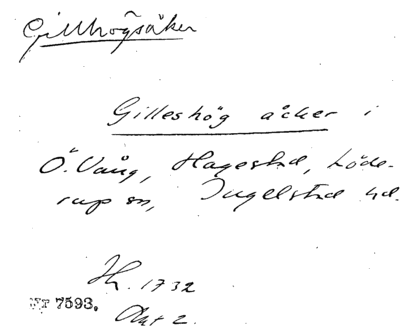 Gillhögsåker
Gilleshög åcker i
Ö. Vång, Hagestad, Löde-
rup sn, Ingelstad hd.
Hh. 1732
Nr 7593.
Akt 2.